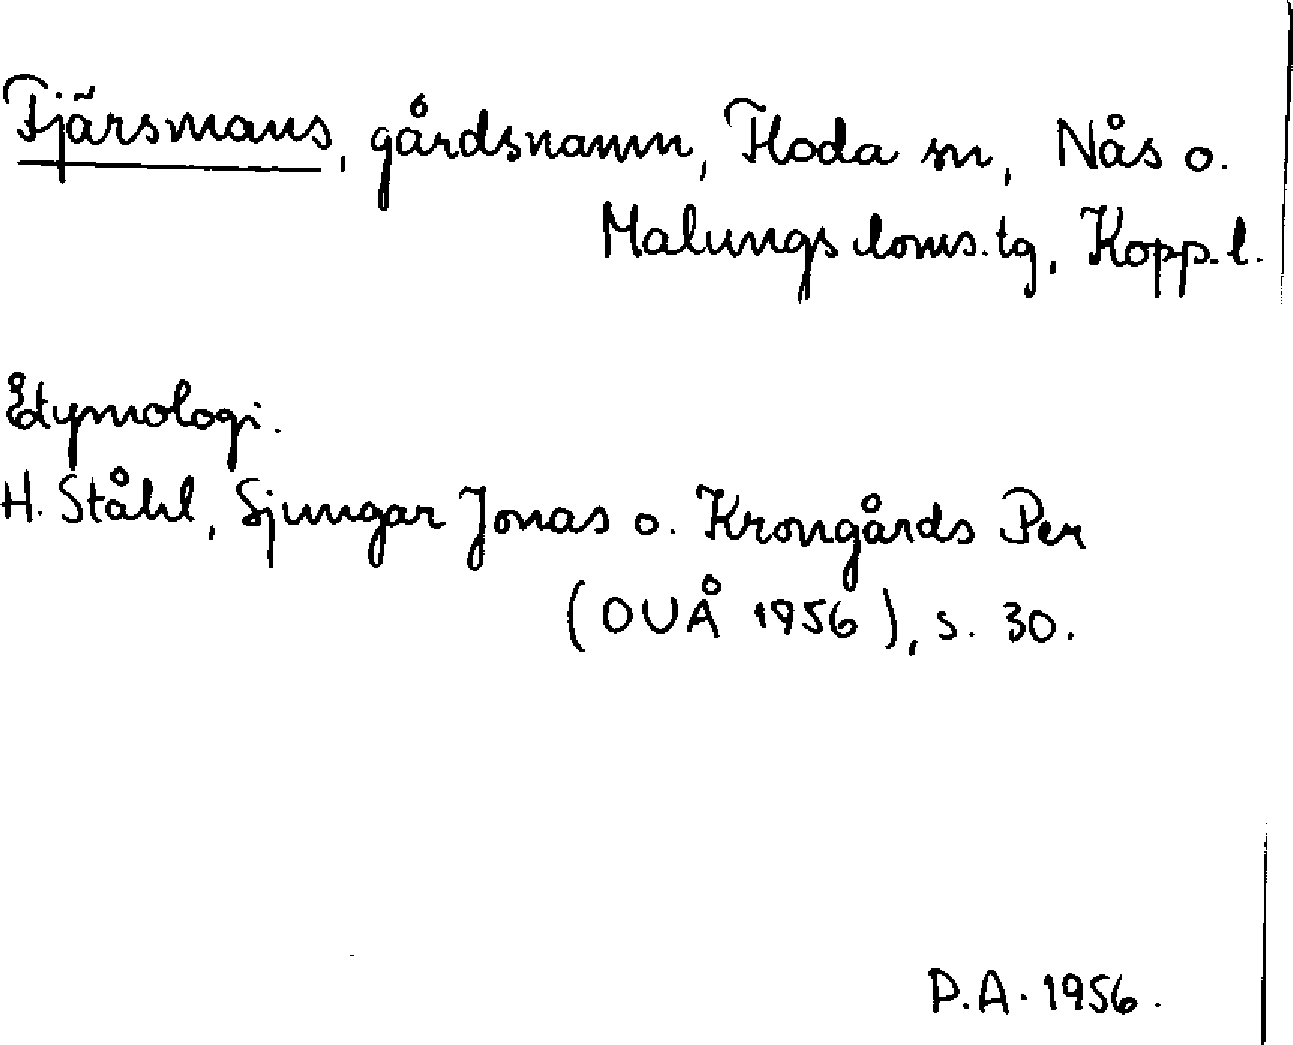 Fjärsmans, gårdsnamn, Floda sn, Nås o.
Malungs doms.tg, Kopp.l.
Etymologi.
H. Ståhl, Sjungar Jonas o. Krongårds Per
(OUÅ 1956), s. 30.
P.A. 1956.